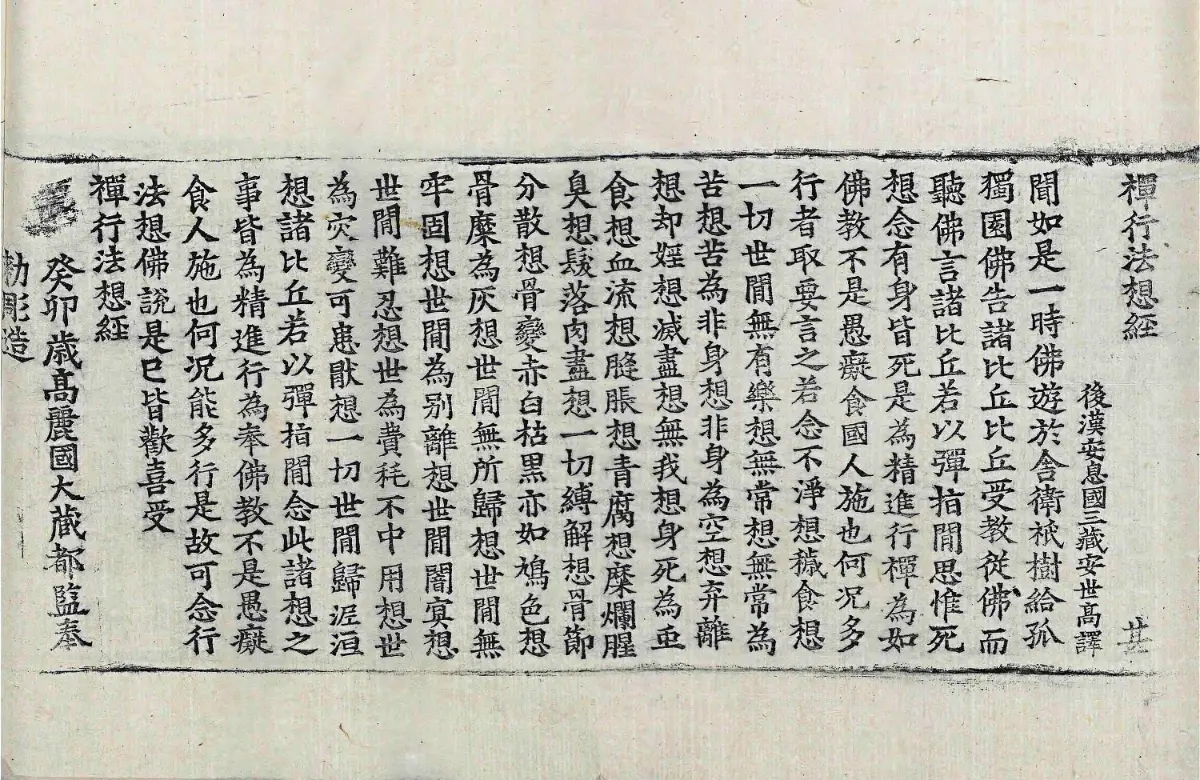 禪行法想經 甚
後漢安息國三藏安世高譯
聞如是一時佛遊於舍衛祇樹給孤
獨園佛告諸比丘比丘受教從佛而
聽佛言諸比丘若以彈指閒思惟死
想念有身皆死是為精進行禪為如
佛教不是愚癡食國人施也何況多
行者取要言之若念不淨想穢食想
一切世閒無有樂想無常想無常為
苦想苦為非身想非身為空想弃離
想却婬想滅盡想無我想身死為虫
食想血流想膖脹想青腐想糜爛腥
臭想髮落肉盡想一切縛解想骨節
分散想骨變赤白枯黑亦如鳩色想
骨糜為灰想世閒無所歸想世閒無
牢固想世閒為別離想世閒闇冥想
世閒難忍想世為費秏不中用想世
為灾變可患猒想一切世閒歸泥洹
想諸比丘若以彈指閒念此諸想之
事皆為精進行為奉佛教不是愚癡
食人施也何況能多行是故可念行
法想佛說是已皆歡喜受
禪行法想經
癸卯歲高麗國大藏都監奉
勅彫造